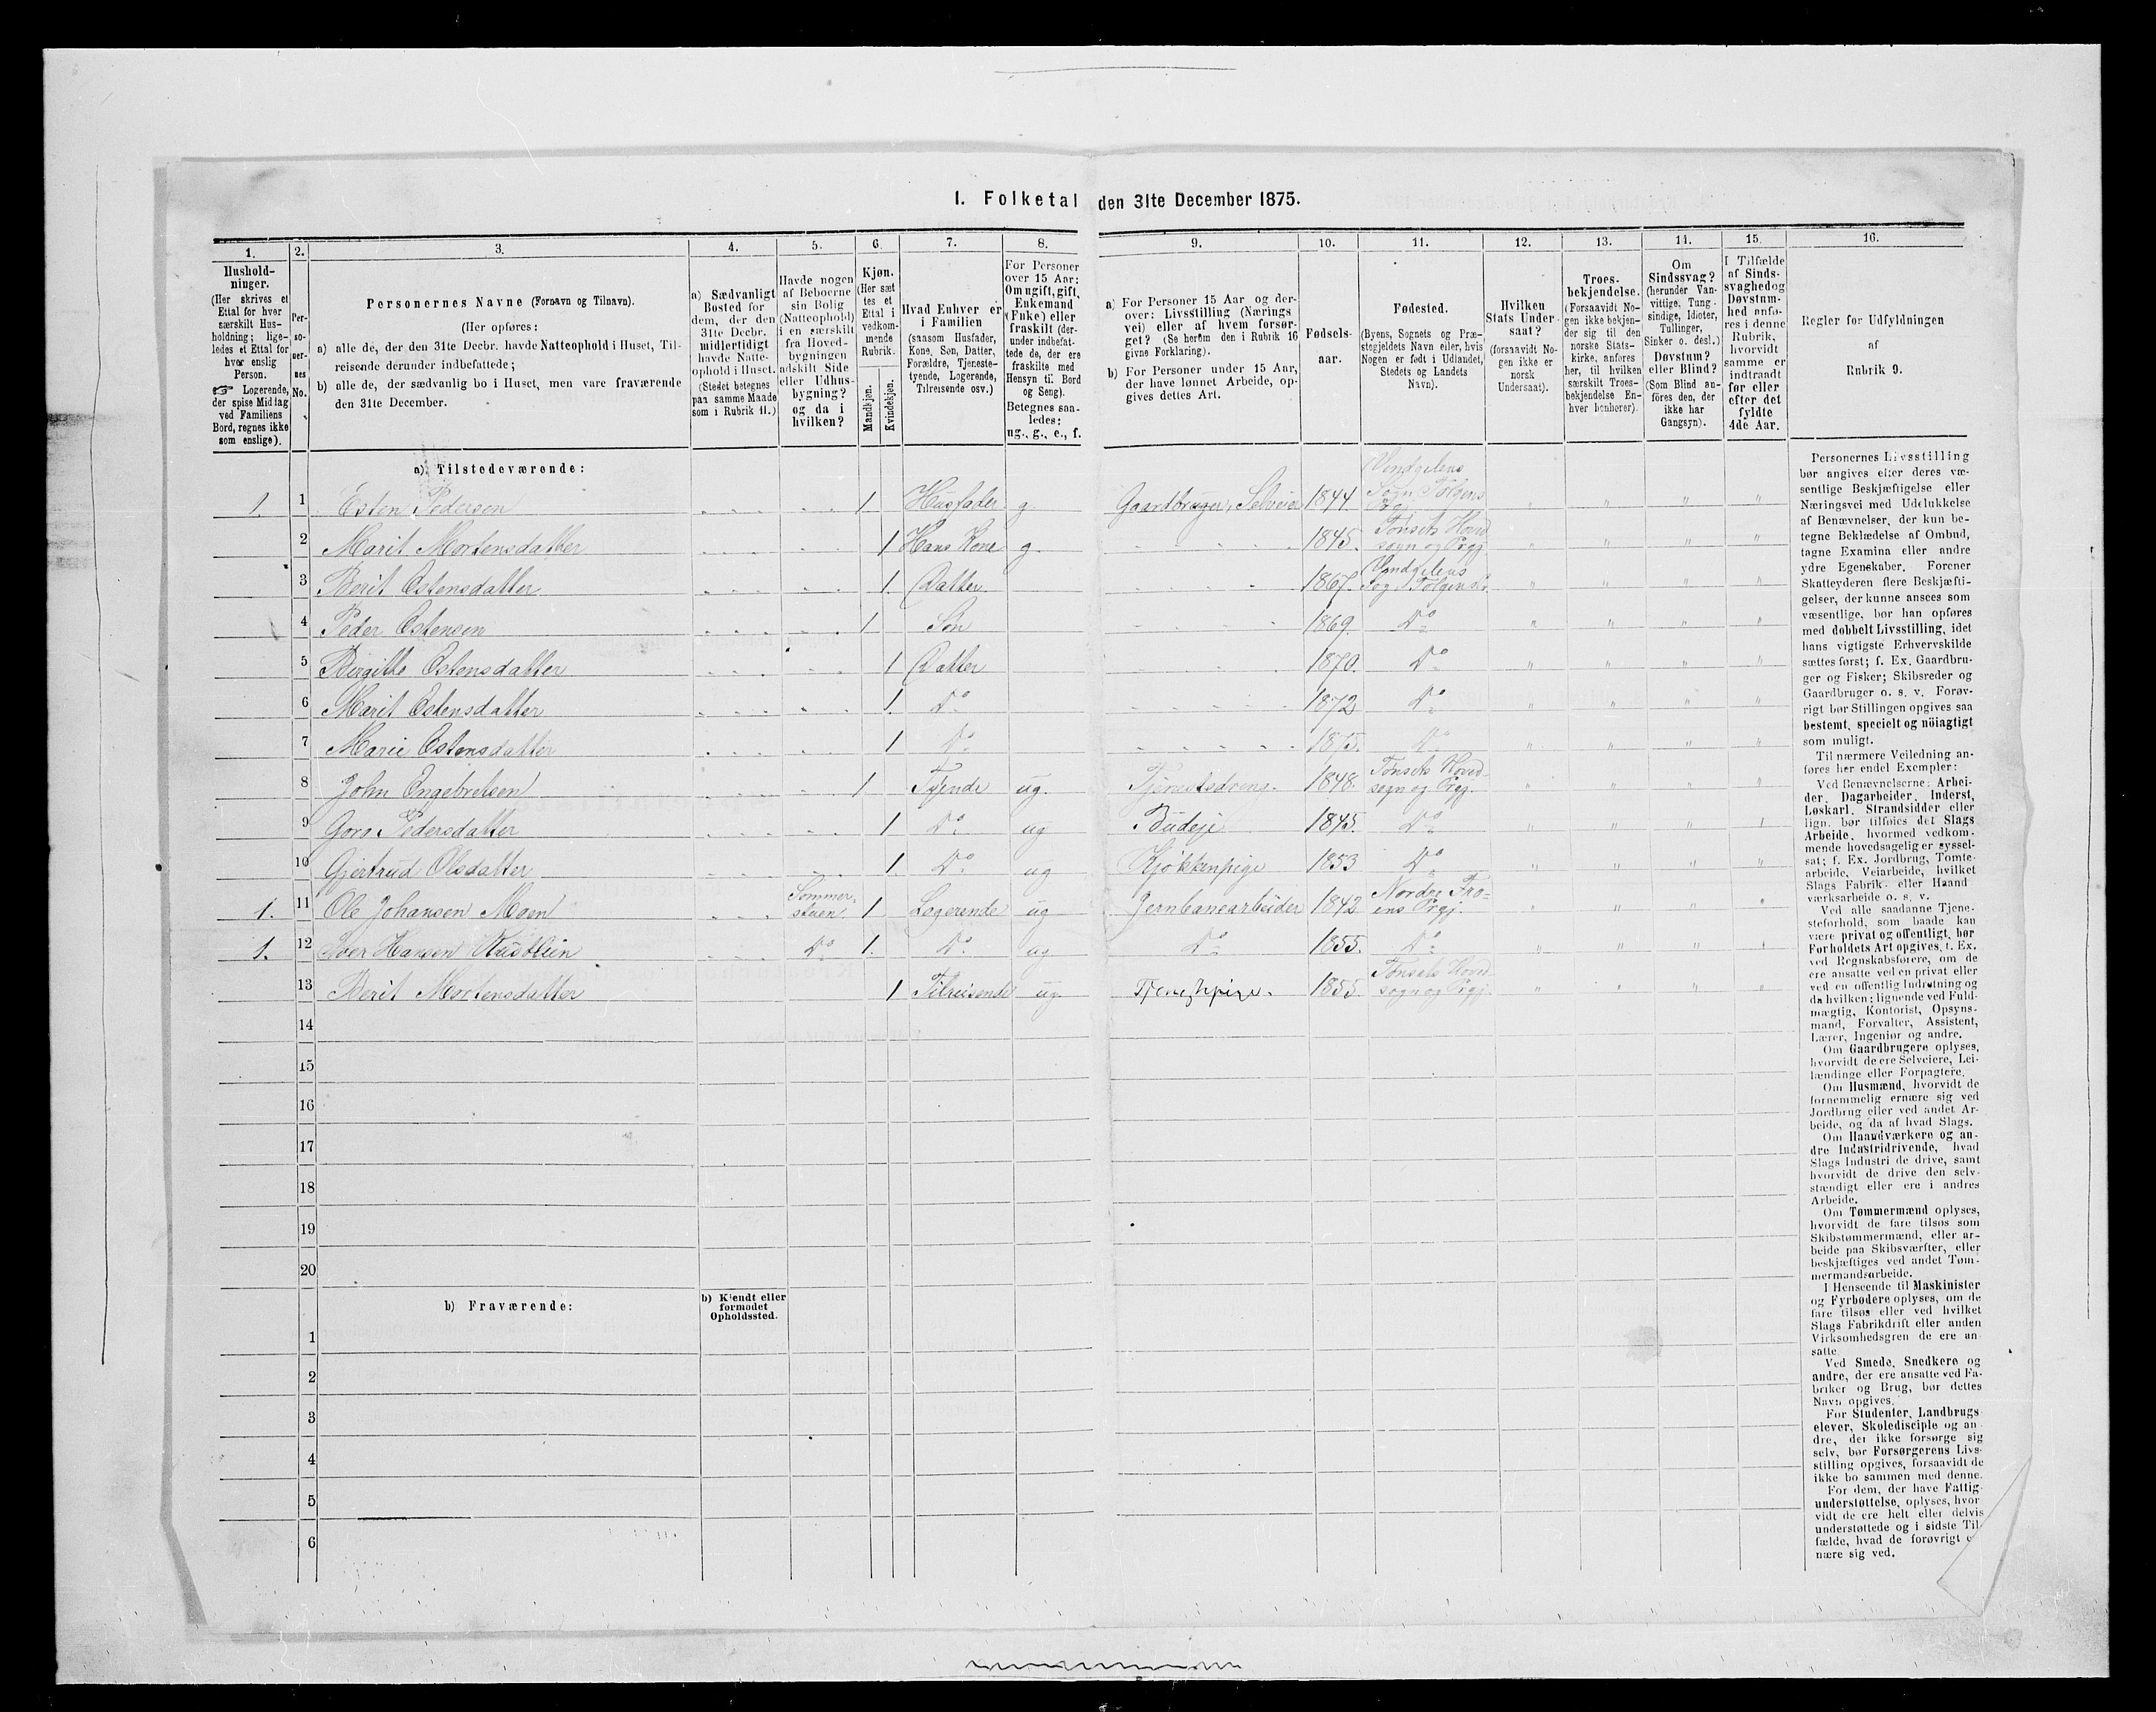 I. Folketal den 31te December 1875.
1. 2. 3. 4. 5. 6. 7. 8. 9. 10. 11. 12. 13. 14. 15. 16.
Hushold-
ninger.
(Her skrives et
Ettal for hver
særskilt Hus-
holdning; lige-
ledes et Ettal for
hver enslig
Person.
☞ Logerende,
der spise Middag
ved Familiens
Bord, regnes ikke
som enslige).
Per-
so-
ner-
nes
No.
Personernes Navne (Fornavn og Tilnavn).
(Her opføres:
a) alle de, der den 31te Decbr. havde Natteophold i Huset, Til-
reisende derunder indbefattede;
b) alle de, der sædvanlig bo i Huset, men vare fraværende
den 31te December.
a) Sædvanligt
Bosted for
dem, der den
31te Decbr.
midlertidigt
havde Natte-
ophold i Huset.
(Stedet betegnes
paa samme Maade
som i Rubrik 11.)
Havde nogen
af Beboerne
sin Bolig
(Natteophold)
i en særskilt
fra Hoved-
bygningen
adskilt Side
eller Udhus-
bygning?
og da i
hvilken?
Kjøn.
(Her sæt
tes et
Ettal i
vedkom-
mende
Rubrik.
Mandkjøn.
Kvindekjøn.
Hvad Enhver er
i Familien
(saasom Husfader,
Kone, Søn, Datter,
Forældre, Tjeneste-
tyende, Logerende,
Tilreisende osv.)
For Personer
over 15 Aar:
Om ugift, gift,
Enkemand
(Enke) eller
fraskilt (der-
under indbefat-
tede de, der ere
fraskilte med
Hensyn til Bord
og Seng).
Betegnes saa-
ledes:
ug., g., e., f.
a) For Personer 15 Aar og der-
over: Livsstilling (Nærings
vei) eller af hvem forsør-
get? (Se herom den i Rubrik 16
givne Forklaring).
b) For Personer under 15 Aar,
der have lønnet Arbeide, op-
gives dettes Art.
Fødsels-
aar.
Fødested.
(Byens, Sognets og Præ-
stegjeldets Navn eller, hvis
Nogen er født i Udlandet,
Stedets og Landets
Navn).
Hvilken
Stats Under-
saat?
(forsaavidt No-
gen ikke er
norsk
Undersaat).
Troes-
bekjendelse.
(Forsaavidt No-
gen ikke bekjen-
der sig til den
norske Stats-
kirke, anføres
her, til hvilken
særskilt Troes-
bekjendelse En-
hver henhører).
Om
Sindssvag?
(herunder Van-
vittige, Tung-
sindige, Idioter,
Tullinger,
Sinker o. desl.)
Døvstum?
eller Blind?
(Som Blind an-
føres den, der
ikke har
Gangsyn).
I Tilfælde
af Sinds-
svaghed og
Døvstum-
hed anfø-
res i denne
Rubrik,
hvorvidt
samme er
indtraadt
før eller
efter det
fyldte
4de Aar.
Regler for Udfyldningen
af
Rubrik 9.
a) Tilstedeværende:
1. 1 Esten Pedersen 1 Husfader g Gaardbruger, Selveier 1844. Vindgelens Sogn Tolgens Prgj
2 Marit Mortensdatter 1 Hans Kone g. 1845. Tønsets Hovedsogn og Prgj
3 Berit Estensdatter 1. Datter 1867.
4 Peder Estensen 1 Søn 1869. Do
5 Birgitte Estensdatter 1 Datter 1870. Do
6 Marit Estensdatter 1. Do 1872 Do
7 Marie Estensdatter 1 Do 1875. Do
8 John Engebretsen 1 Tjende ug. Tjenestedreng 1848. Tønsets Hovedsogn og Prgj.
9 Goro Pedersdatter 1 Do ug Budeje 1845. Do
10 Gjertrud Olsdatter 1. Do ug Kjøkkenpige 1853 Do
1. 11 Ole Johansen Moen Sommerstuen 1 Logerende ug Jernbanearbeider 1842 Nordre Froens Prgj.
1. 12 Iver Hansen Do 1. Do ug Do 1855. Do
13 Berit Mortensdatter 1 Tilreisende ug Tjenestepige. 1855 Tønsets Hovedsogn og Prgj.
14
15
16
17
18
19
20
b) Fraværende:
b) Kjendt eller
formodet
Opholdssted.
1
2
3
4
5
6
Personernes Livsstilling
bør angives efter deres væ-
sentlige Beskjæftigelse eller
Næringsvei med Udelukkelse
af Benævnelser, der kun be-
tegne Beklædelse af Ombud,
tagne Examina eller andre
ydre Egenskaber. Forener
Skatteyderen flere Beskjæfti-
gelser, der kunne ansees som
væsentlige, bør han opføres
med dobbelt Livsstilling, idet
hans vigtigste Erhvervskilde
sættes først; f. Ex. Gaardbru-
ger og Fisker; Skibsreder og
Gaardbruger o. s. v. Forøv-
rigt bør Stillingen opgives saa
bestemt, specielt og nöiagtigt
som muligt.
Til nærmere Veiledning an-
føres her endel Exempler:
Ved Benævnelserne: Arbei-
der, Dagarbeider, Inderst,
Løskarl, Strandsidder eller
lign. bør tilføies det Slags
Arbeide, hvormed vedkom-
mende hovedsagelig er syssel-
sat; f. Ex. Jordbrug, Tomte-
arbeide, Veiarbeide, hvilket
Slags Fabrik- eller Haand
værksarbeide o. s. v.
Ved alle saadanne Tjene-
steforhold, som baade kan
være privat og offentligt, bør
Forholdets Art opgives, f. Ex.
ved Regnskabsførere, om de
ere ansatte ved en privat eller
ved en offentlig Indretning og
da hvilken; lignende ved Fuld-
mægtig, Kontorist, Opsyns-
mand, Forvalter, Assistent,
Lærer, Ingeniør og andre.
Om Gaardbrugere oplyses,
hvorvidt de ere Selveiere, Lei-
lændinge eller Forpagtere.
Om Husmænd, hvorvidt de
fornemmelig ernære sig ved
Jordbrug eller ved andet Ar-
beide, og da af hvad Slags.
Om Haandværkere og an-
dre Industridrivende, hvad
Slags Industri de drive, samt
hvorvidt de drive den selv-
stændigt eller ere i andres
Arbeide.
Om Tømmermænd oplyses,
hvorvidt de fare tilsøs som
Skibstømmermænd, eller ar-
beide paa Skibsværfter, eller
beskjæftiges ved andet Tøm-
mermandsarbeide.
I Henseende til Maskinister
og Fyrbødere oplyses, om de
fare tilsøs eller ved hvilket
Slags Fabrikdrift eller anden
Virksomhedsgren de ere an-
satte
Ved Smede, Snedkere og
andre, der ere ansatte ved Fa-
briker og Brug, bør dettes
Navn opgives.
For Studenter, Landbrugs
elever, Skoledisciple og an-
dre, der ikke forsørge sig
selv, bør Forsørgerens Livs-
stilling opgives, forsaavidt de
ikke bo sammen med denne.
For dem, der have Fattig-
understøttelse, oplyses, hvor
vidt de ere helt eller delvis
understøttede og i sidste Til-
fælde, hvad de forøvrigt er-
nære sig ved.